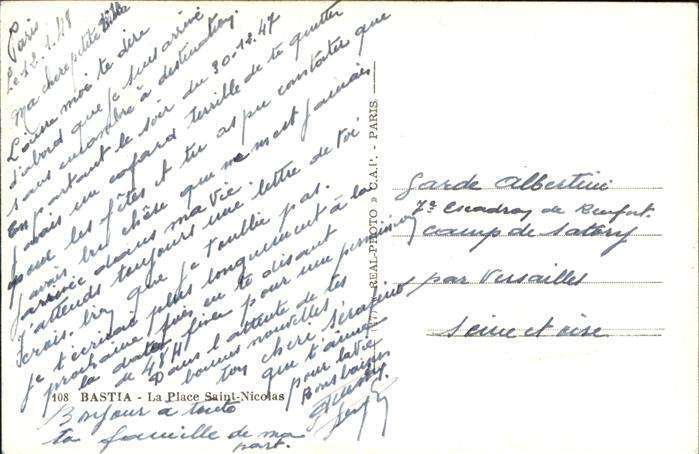 Paris
Le 12.1.48
Ma chere petite
Laisse moi te dire
d'abord que je suis arrivé
sans encombre à destination.
En partant le soir du 30-12.47
j'avais un cafard terrible de te quitter
pour les fêtes et tu as pu constater que
j'avais bu chose que ne m'est jamais
arrivée dans ma vie
J'attends toujours une lettre de toi
crois bien que je t'oublie pas.
je t'écrirais plus longuement à la
prochaine fois en te disant
la date fixer pour une permission
de 48H
Dans l'attente de tes
bonnes nouvelles
ton cheri Séraphin
que t'aime
pour la vie
Bons baisers
108 BASTIA - La Place Saint-Nicolas
Bonjour a toute
ta famille de ma
part.
« REAL-PHOTO » C.A.P. - PARIS
Garde Albertini
7e Escadron de Renfort.
Camp de Satory
par Versailles
Seine et oise